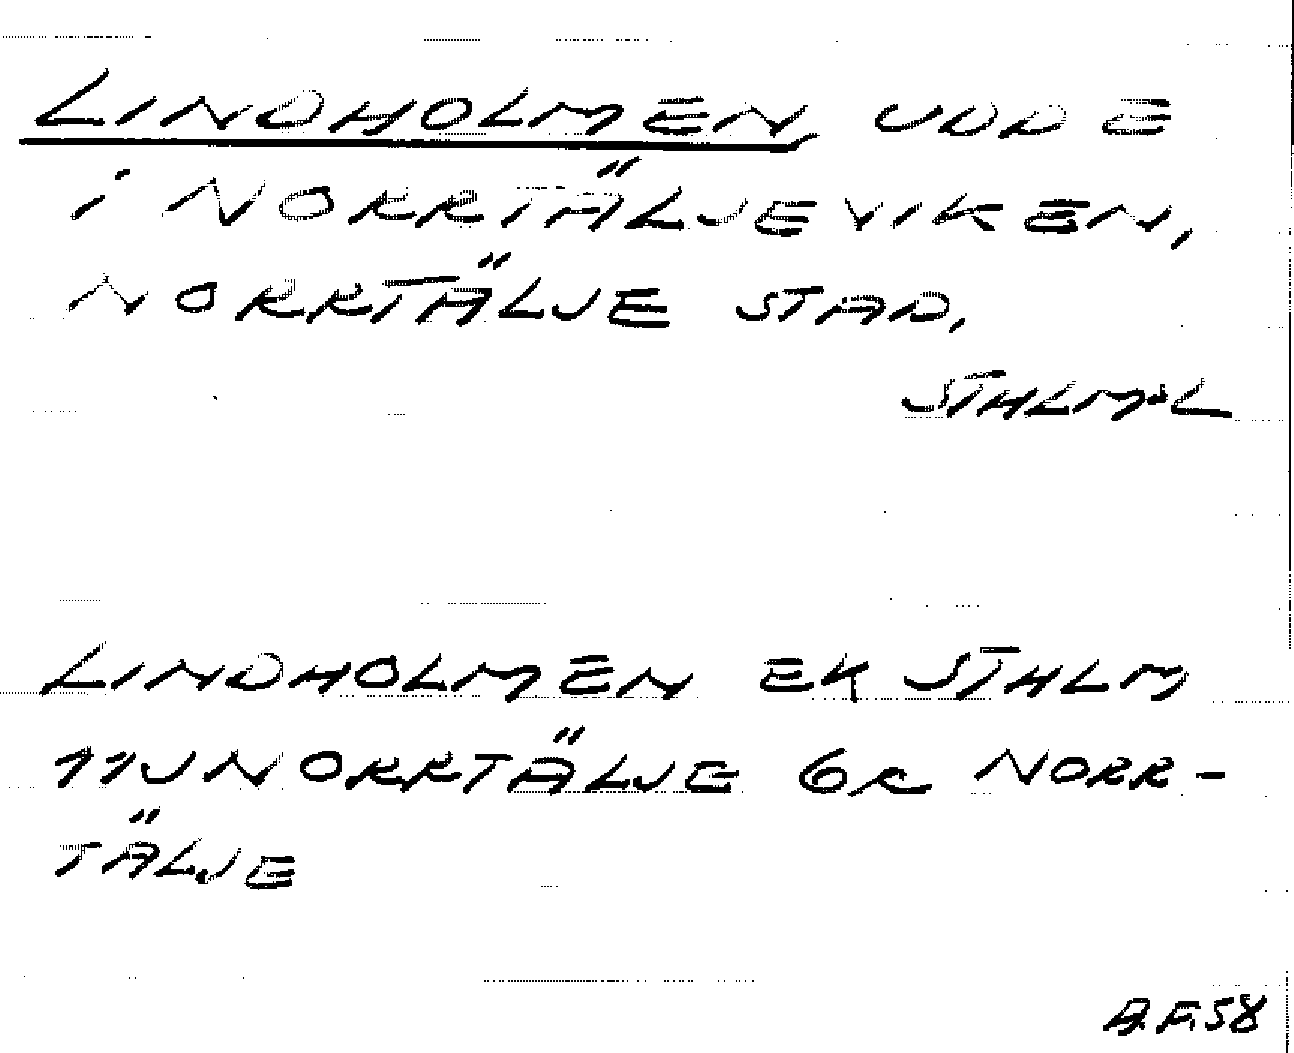 LINDHOLMEN, UDDE
i NORRTÄLJEVIKEN,
NORRTÄLJE STAD,
STHLMSL
LINDHOLMEN EK STHLM
11J NORRTÄLJE 6c NORR-
TÄLJE
A.F.58